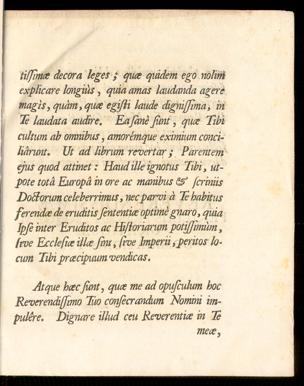 tissimæ decora leges; quæ quidem ego nolim
explicare longiùs, quia amas laudanda agere
magis, quàm, quæ egisti laude dignissima, in
Te laudata audire. Ea sanè sunt, quæ Tibi
cultum ab omnibus, amorémque eximium conci-
liârunt. Ut ad librum revertar; Parentem
ejus quod attinet: Haud ille ignotus Tibi, ut-
pote totâ Europâ in ore ac manibus & scriniis
Doctorum celeberrimus, nec parvi à Te habitus
ferendæ de eruditis sententiæ optimè gnaro, quia
Ipse inter Eruditos ac Historiarum potissimùm,
sive Ecclesiæ illæ sint, sive Imperii, peritos lo-
cum Tibi præcipuum vendicas.
Atque hæc sunt, quæ me ad opusculum hoc
Reverendissimo Tuo consecrandum Nomini im-
pulêre. Dignare illud ceu Reverentiæ in Te
meæ,